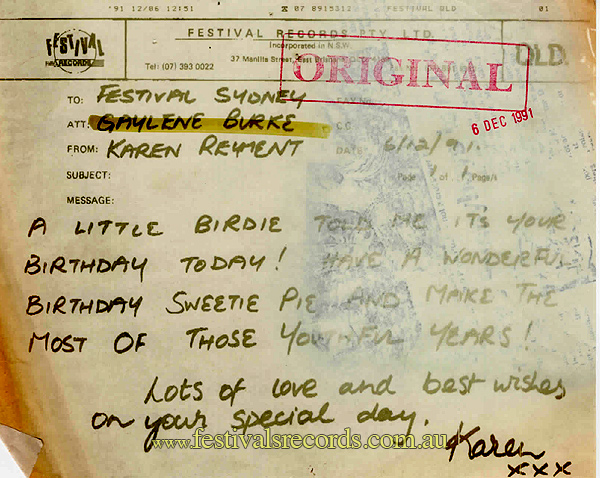 '91 12/06 12:51 ☎ 07 8915312 FESTIVAL QLD 01
FESTIVAL RECORDS PTY. LTD.
Incorporated in N.S.W.
FESTIVAL
RECORDS
37 Manilla Street, East
Tel: (07) 393 0022
QLD.
ORIGINAL
6 DEC 1991
TO: FESTIVAL SYDNEY
ATT: GAYLENE BURKE
FROM: KAREN REYMENT DATE: 6/12/91.
SUBJECT: Page 1 of 1 Page/s
MESSAGE:
A LITTLE BIRDIE TOLD ME ITS YOUR
BIRTHDAY TODAY! HAVE A WONDERFUL
BIRTHDAY SWEETIE PIE AND MAKE THE
MOST OF THOSE YOUTHFUL YEARS!
Lots of love and best wishes
on your special day.
www.festivalsrecords.com.au
Karen
xxx